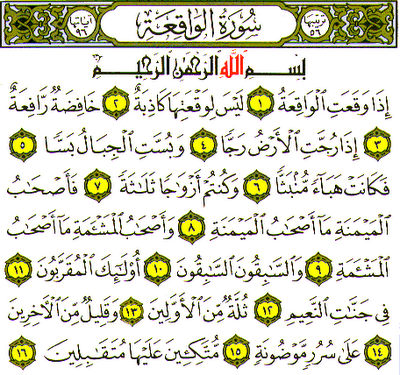 ترتيبها ٥٦ سورة الواقعة آياتها ٩٦
بسم الله الرحمن الرحيم
إِذَا وَقَعَتِ الْوَاقِعَةُ ١ لَيْسَ لِوَقْعَتِهَا كَاذِبَةٌ ٢ خَافِضَةٌ رَّافِعَةٌ
٣ إِذَا رُجَّتِ الْأَرْضُ رَجًّا ٤ وَبُسَّتِ الْجِبَالُ بَسًّا ٥
فَكَانَتْ هَبَاءً مُّنۢبَثًّا ٦ وَكُنتُمْ أَزْوَاجًا ثَلَاثَةً ٧ فَأَصْحَابُ
الْمَيْمَنَةِ مَا أَصْحَابُ الْمَيْمَنَةِ ٨ وَأَصْحَابُ الْمَشْـَٔمَةِ مَا أَصْحَابُ
الْمَشْـَٔمَةِ ٩ وَالسَّابِقُونَ السَّابِقُونَ ١٠ أُولَٰئِكَ الْمُقَرَّبُونَ ١١
فِي جَنَّاتِ النَّعِيمِ ١٢ ثُلَّةٌ مِّنَ الْأَوَّلِينَ ١٣ وَقَلِيلٌ مِّنَ الْآخِرِينَ
١٤ عَلَىٰ سُرُرٍ مَّوْضُونَةٍ ١٥ مُّتَّكِـِٔينَ عَلَيْهَا مُتَقَابِلِينَ ١٦